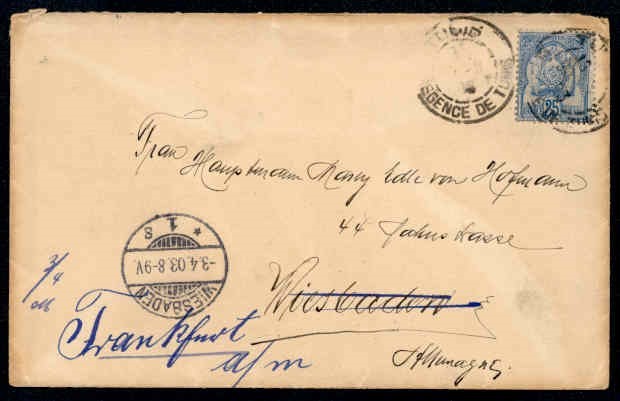 TUNIS
REGENCE DE TUNIS
25
Frau Hauptmann Romy Edle von Hofmann
44 Jahnstrasse
Wiesbaden
Allemagne
WIESBADEN
* 1 s
-3.4.03.8-9V.
3/4
Frankfurt
a/m